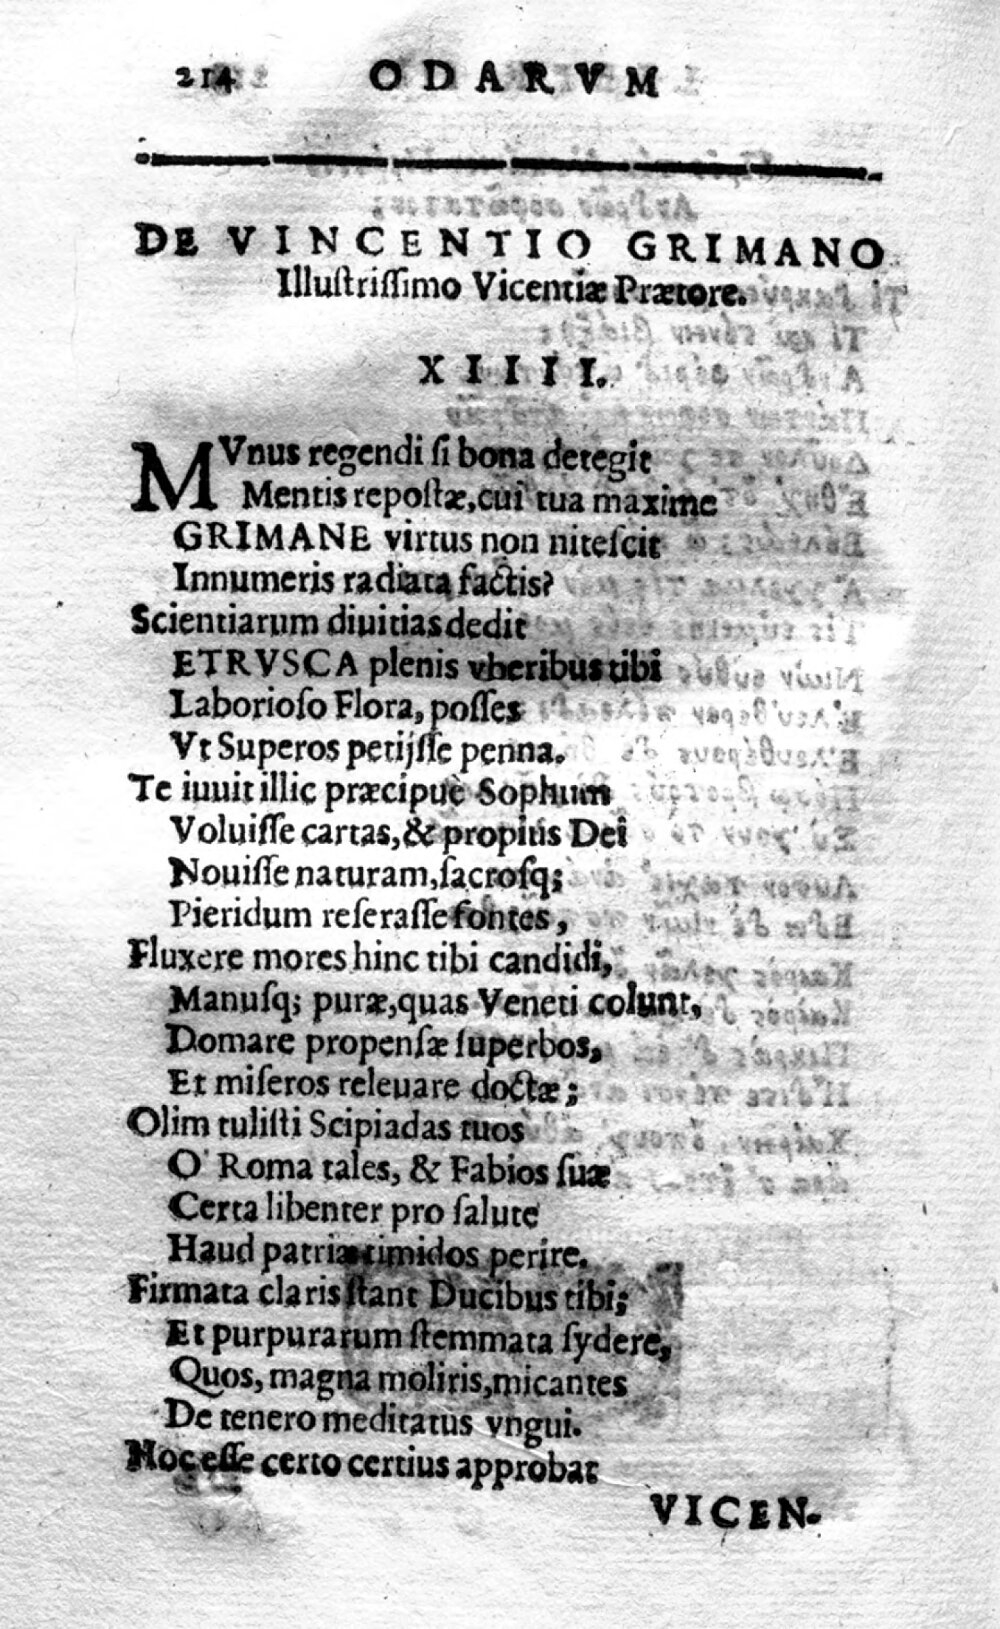 214 ODARVM
DE VINCENTIO GRIMANO
Illustrissimo Vicentiæ Prætore.
XIIII.
MVnus regendi si bona detegit
Mentis repostæ, cui tua maxime
GRIMANE virtus non nitescit
Innumeris radiata factis?
Scientiarum diuitias dedit
ETRVSCA plenis vberibus tibi
Laborioso Flora, posses
Vt Superos petijsse penna.
Te iuuit illic præcipuè Sophum
Voluisse cartas, & propius Dei
Nouisse naturam, sacrosq;
Pieridum reserasse fontes,
Fluxere mores hinc tibi candidi,
Manusq; puræ, quas Veneti colunt,
Domare propensæ superbos,
Et miseros releuare doctæ;
Olim tulisti Scipiadas tuos
O' Roma tales, & Fabios suæ
Certa libenter pro salute
Haud patriæ timidos perire.
Firmata claris stant Ducibus tibi;
Et purpurarum stemmata sydere,
Quos, magna moliris, micantes
De tenero meditatus vngui.
Hoc esse certo certius approbat
VICEN-